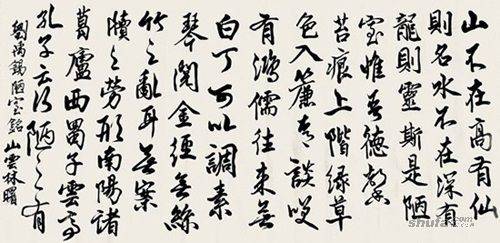 山不在高有仙
則名水不在深有
龍則靈斯是陋
室惟吾德馨
苔痕上階綠草
色入簾青談咲
有鴻儒往來無
白丁可以調素
琴閱金經無絲
竹之亂耳無案
牘之勞形南陽諸
葛廬西蜀子雲亭
孔子云何陋之有
劉禹錫陋室銘 山雲林曙